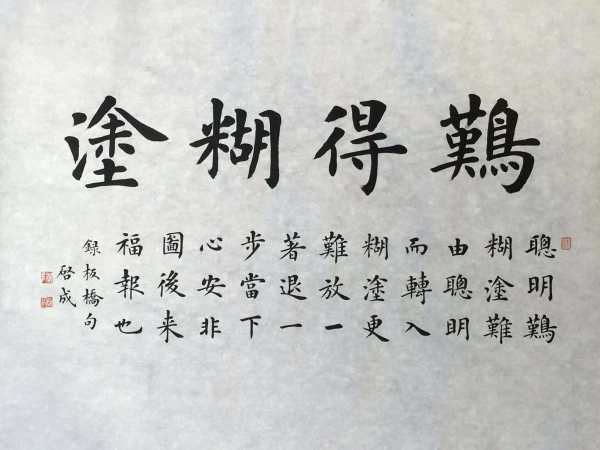 𪄿得糊塗
聰明𪄿
糊塗難
由聰明
而轉入
糊塗更
難放一
著退一
步當下
心安非
圖後来
福報也
録板橋句
啓成